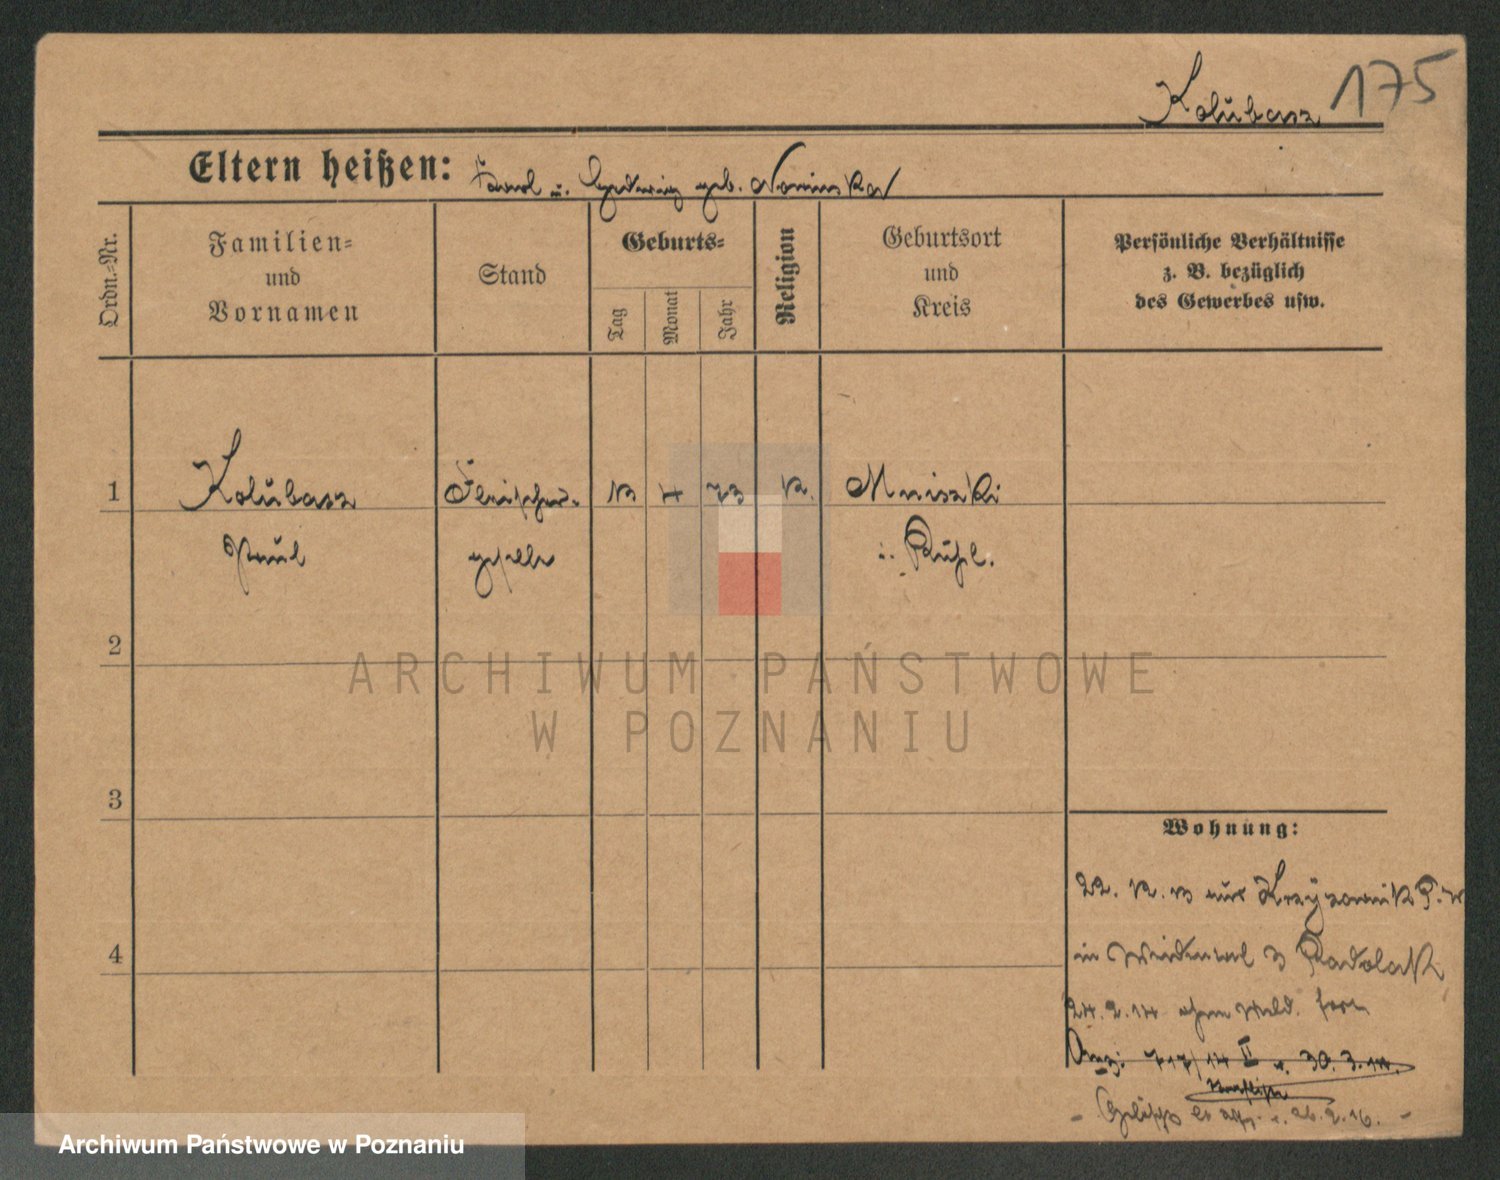 Kolubasz 175
Eltern heißen: Karl u. Hedwig geb. Nowinska
Ordn.-Nr.
Familien-
und
Vornamen
Stand
Geburts-
Tag
Monat
Jahr
Religion
Geburtsort
und
Kreis
Persönliche Verhältnisse
z. B. bezüglich
des Gewerbes usw.
1 Kolubasz Fleischer- 13 4 73 K. Mniszki
Paul geselle
2
3
4
Wohnung:
22. 12. 13
in 3 Radolak
24. 2. 14 ohne Meld. fort
717/14 II v. 30. 3. 14.
26. 2. 16.
ARCHIWUM PAŃSTWOWE
W POZNANIU
Archiwum Państwowe w Poznaniu